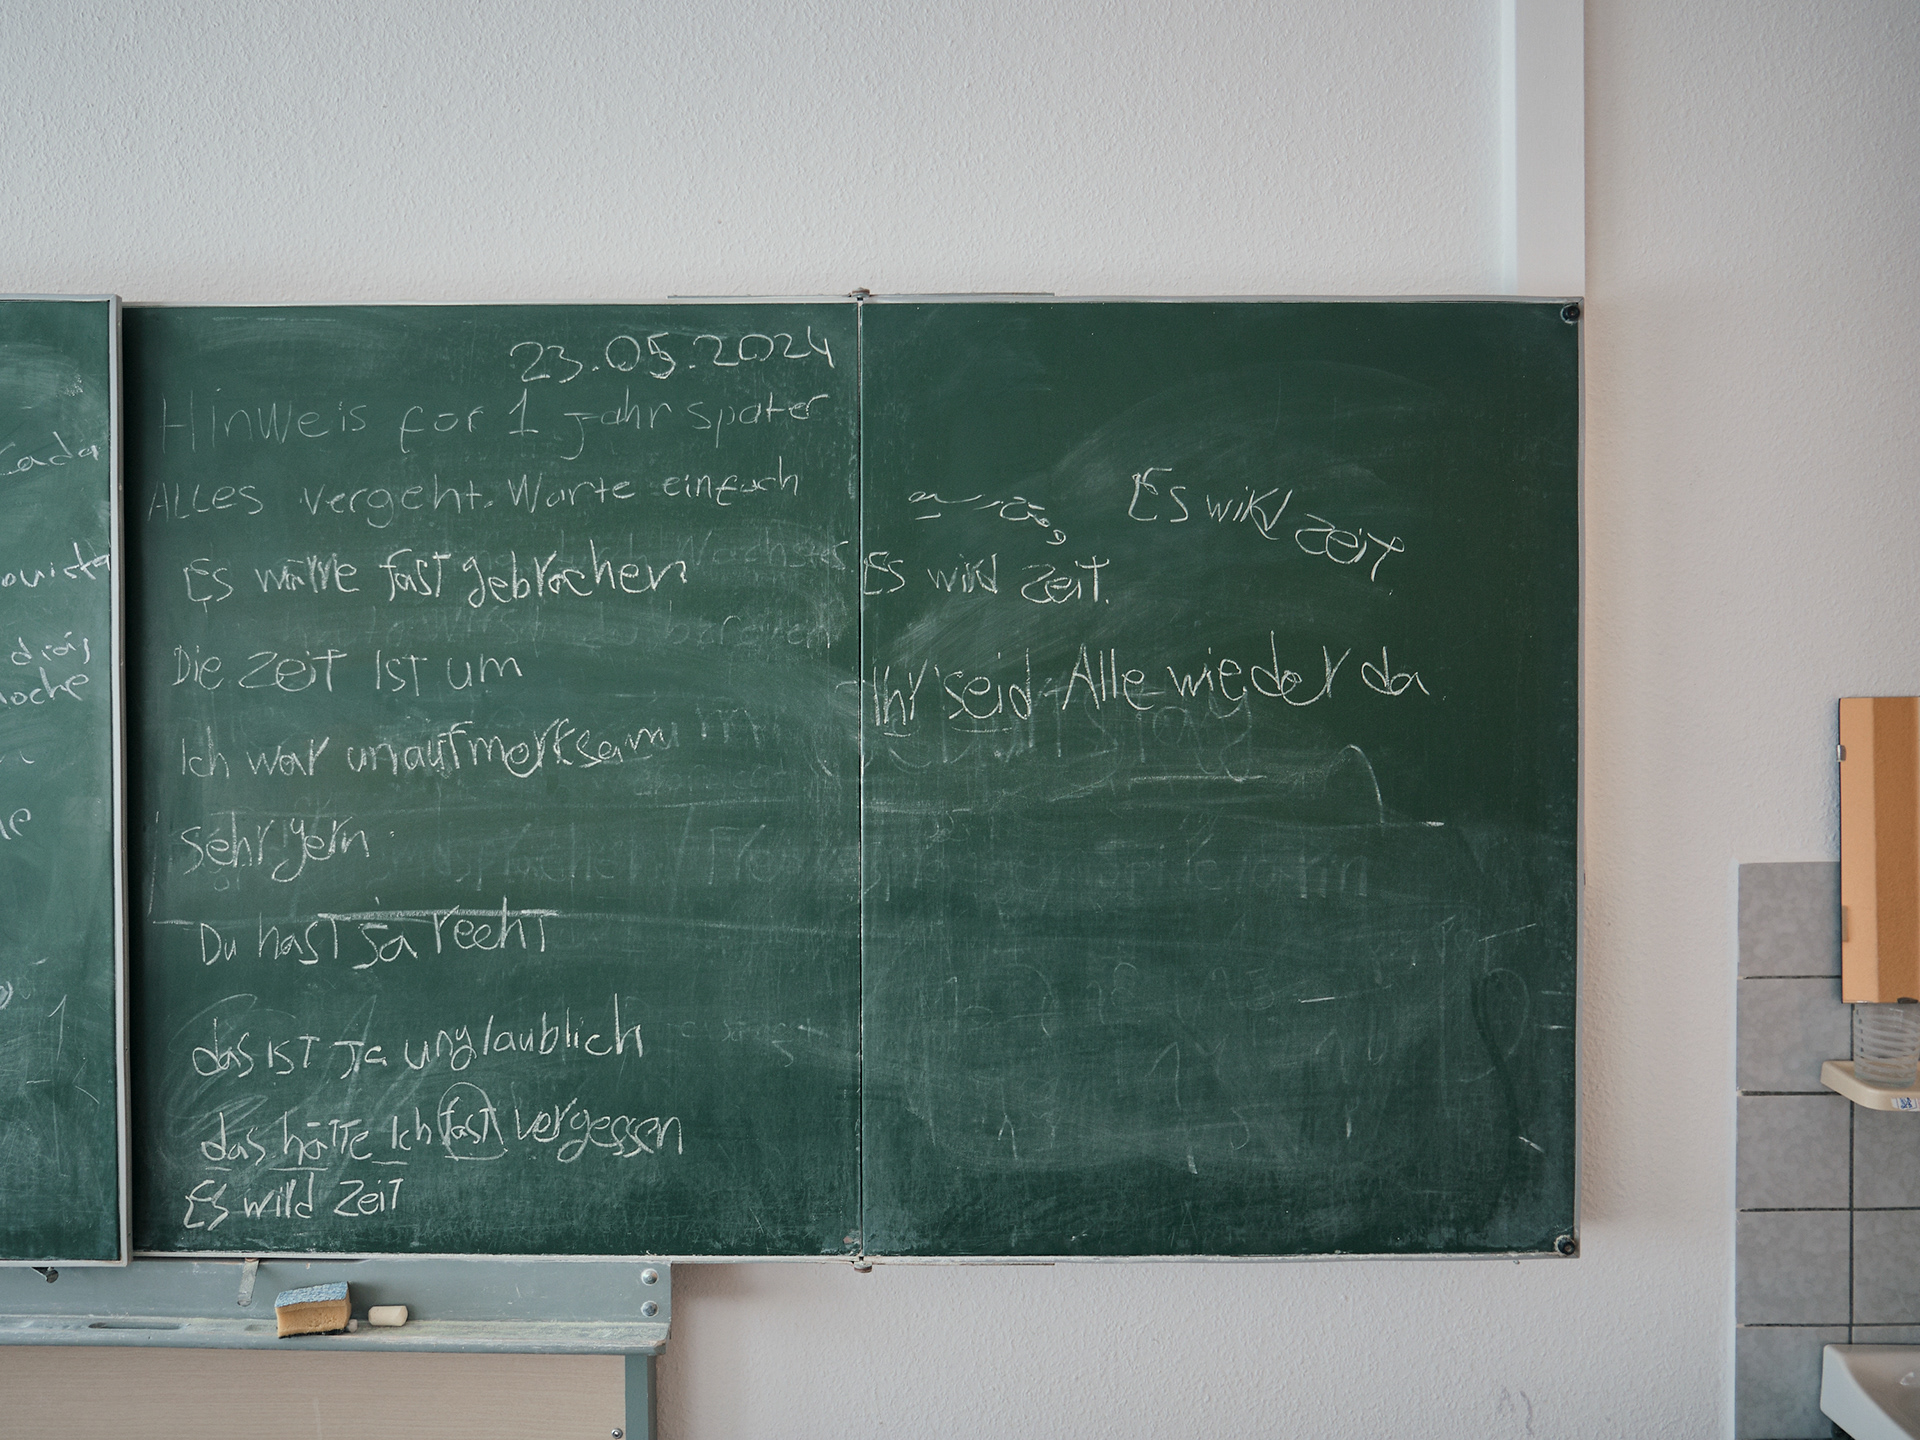 Cada
ouista
días
noche
23.05.2024
Hinweis for 1 Jahr später
ALLES vergeht. Warte einfach
Es wäre fast gebrochen
Die Zeit ist um
Ich war unaufmerksam
sehr gern
Du hast ja recht
das ist ja unglaublich
das hätte Ich fast vergessen
Es wird Zeit
Es wird Zeit.
Es wird Zeit.
Ihr seid Alle wieder da